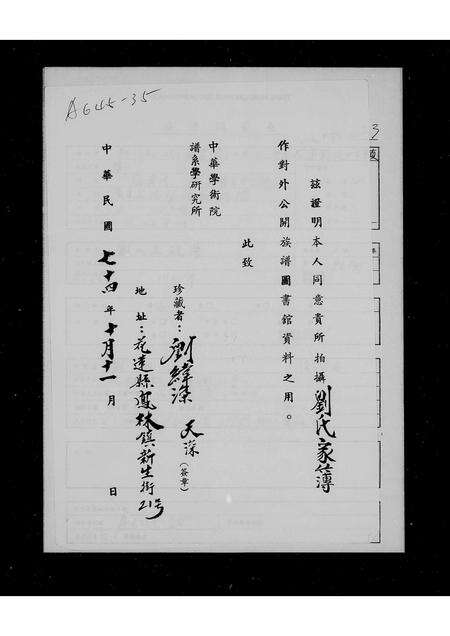 A645-35
茲證明本人同意貴所拍攝劉氏家簿
作對外公開族譜圖書館資料之用。
此致
中華學術院
譜系學研究所
珍藏者：劉緯深 天深(簽章)
地址：花蓮縣鳳林鎮新生街21号
中華民國七十四年十月十一月 日